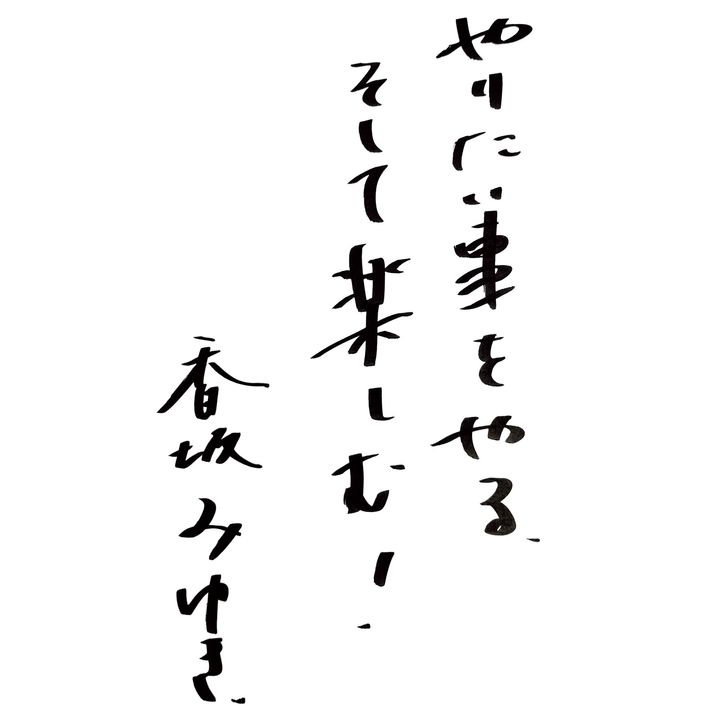 やりたい事をやる、
そして楽しむ！
香坂みゆき、